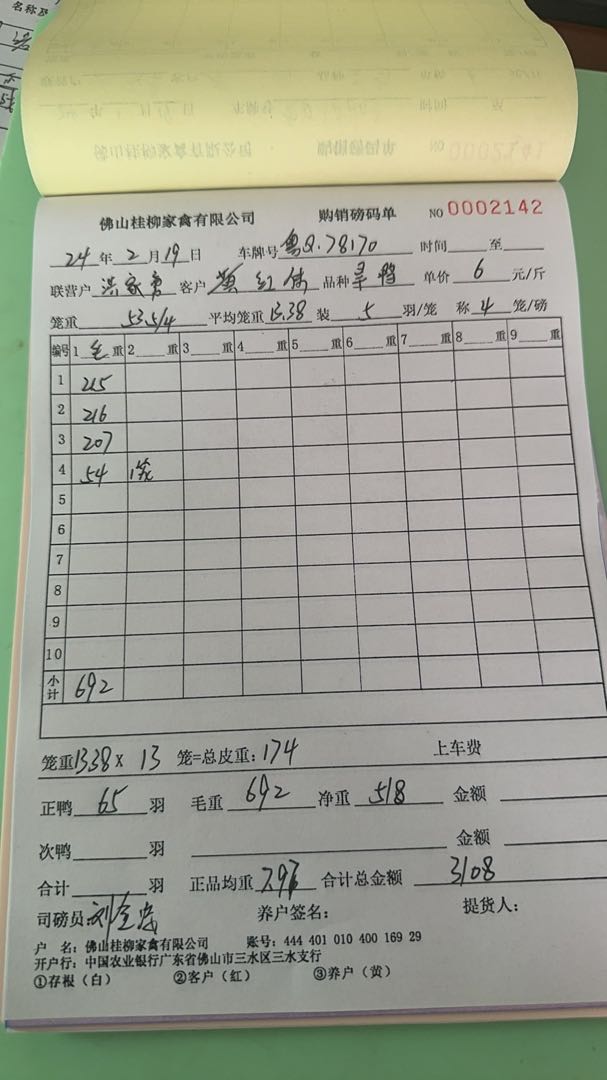 名称及
佛山桂柳家禽有限公司 购销磅码单 NO 0002142
24 年 2 月 19 日 车牌号 粤Q.78170 时间 至
联营户 洪家勇 客户 红伟 品种 旱鸭 单价 6 元/斤
笼重 53.5/4 平均笼重 13.38 装 5 羽/笼 称 4 笼/磅
编号 1 毛 重 2 重 3 重 4 重 5 重 6 重 7 重 8 重 9 重
1 215
2 216
3 207
4 54 1笼
5
6
7
8
9
10
小计 692
笼重 13.38 x 13 笼=总皮重: 174 上车费
正鸭 65 羽 毛重 692 净重 518 金额
次鸭 羽 金额
合计 羽 正品均重 7.97 合计总金额 3108
司磅员 刘 养户签名: 提货人:
户 名: 佛山桂柳家禽有限公司 账号: 444 401 010 400 169 29
开户行: 中国农业银行广东省佛山市三水区三水支行
①存根（白） ②客户（红） ③养户（黄）